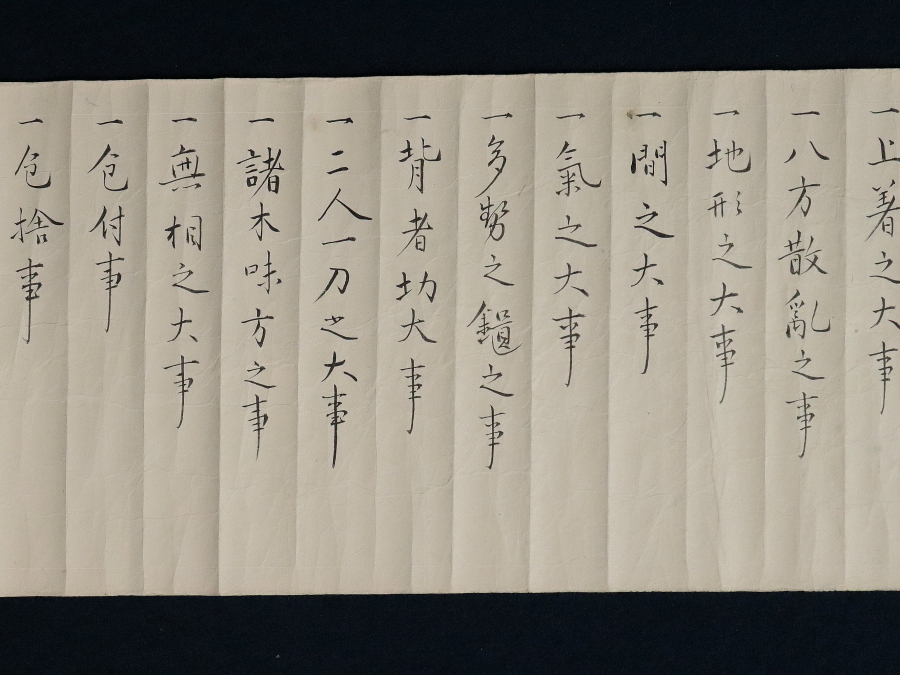 一上着之大事
一八方散亂之事
一地形之大事
一間之大事
一氣之大事
一多勢之鎚之事
一背者切大事
一二人一刀之大事
一諸木味方之事
一無相之大事
一色付事
一色捨事